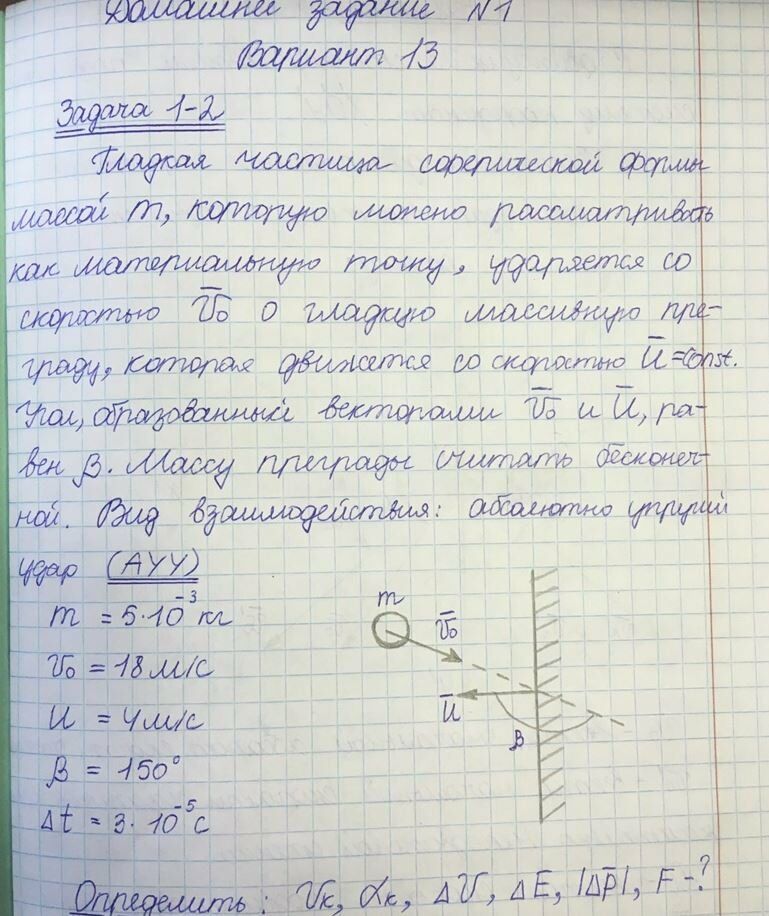 Домашнее задание N1
Вариант 13
Задача 1-2
Гладкая частица сферической формы
массой m, которую можно рассматривать
как материальную точку, ударяется со
скоростью v̅₀ о гладкую массивную пре-
граду, которая движется со скоростью u̅=const.
Угол, образованный векторами v̅₀ и u̅, ра-
вен β. Массу преграды считать бесконеч-
ной. Вид взаимодействия: абсолютно упругий
удар (АУУ)
m = 5·10⁻³ кг
v₀ = 18 м/с
u = 4 м/с
β = 150°
Δt = 3·10⁻⁵ с
m
v̅₀
u̅
β
Определить: vк, αк, ΔV, ΔE, |Δp̅|, F-?